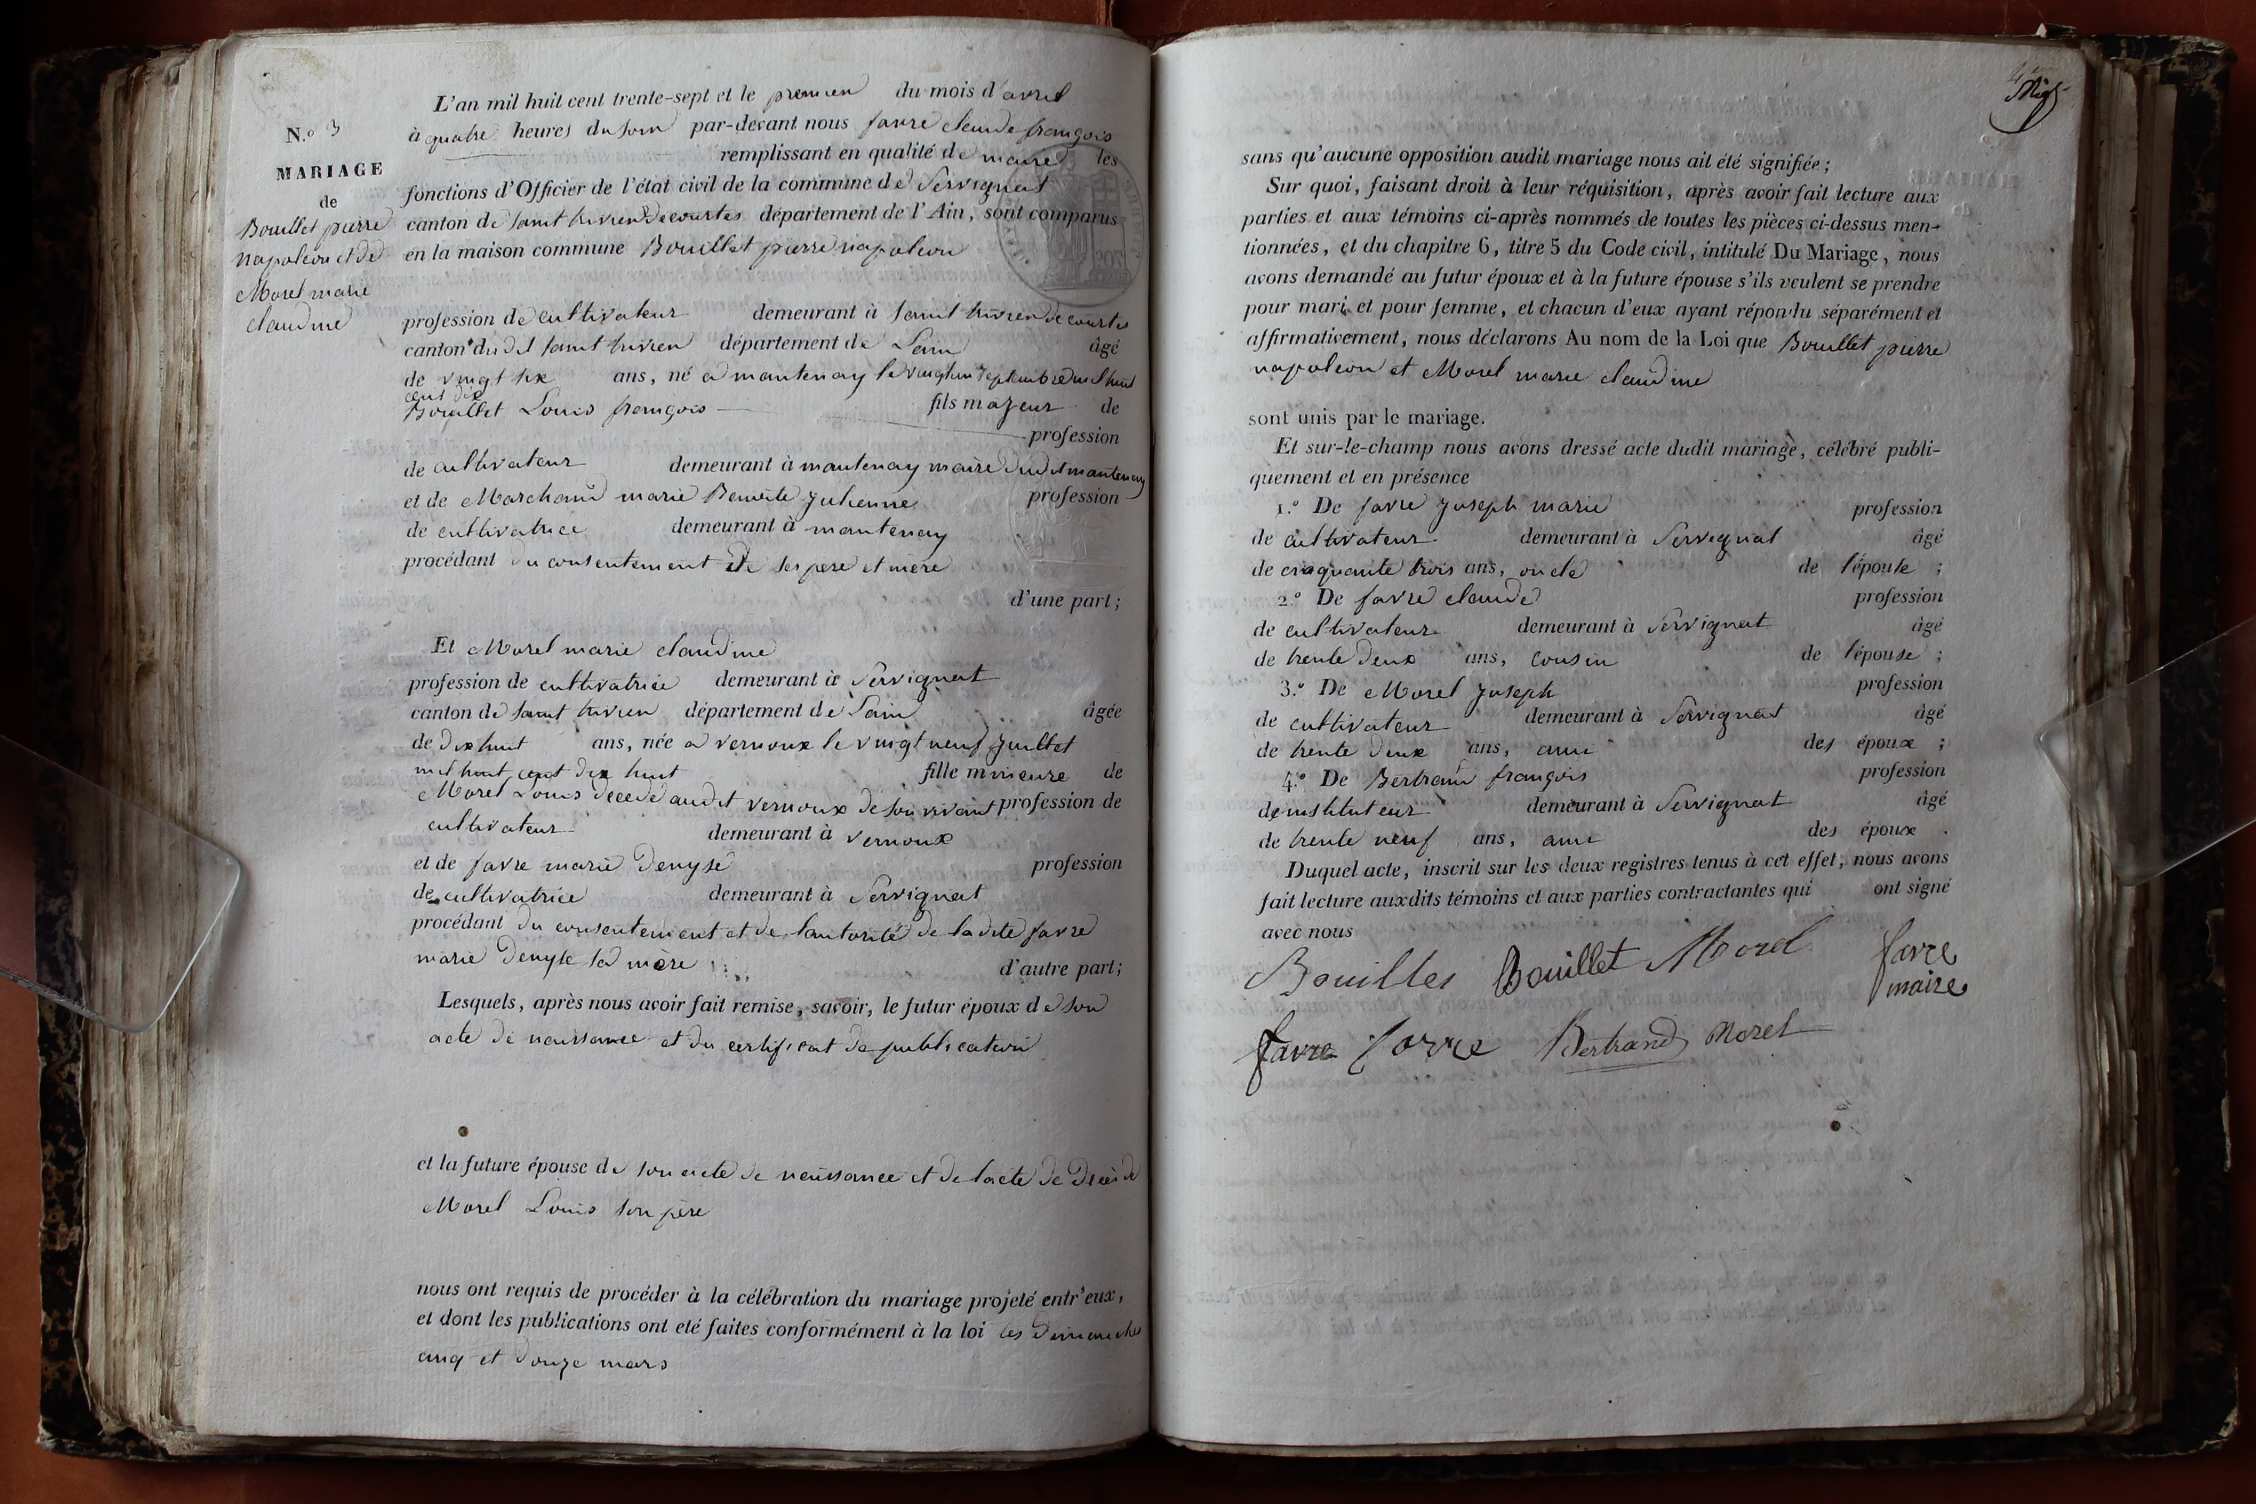 L'an mil huit cent trente-sept et le premier du mois d'avril
à quatre heures du soir par-devant nous favre claude françois
remplissant en qualité de maire les
fonctions d'Officier de l'état civil de la commune de Servignat
canton de saint trivier de courtes département de l'Ain, sont comparus
en la maison commune Bouillet pierre napoleon
N.o 3
MARIAGE
de
Bouillet pierre
napoleon et de
Morel marie
claudine
profession de cultivateur demeurant à saint trivier de courtes
canton dudit saint trivier département de Lain âgé
de vingt six ans, né a mantenay le vingt un septembre mil huit
cent dix
Bouillet Louis françois fils majeur de
profession
de cultivateur demeurant à mantenay maire dudit mantenay
et de Marchand marie Benoite Julienne profession
de cultivatrice demeurant à mantenay
procédant du consentement de ses pere et mere
d'une part;
Et Morel marie claudine
profession de cultivatrice demeurant à Servignat
canton de saint trivier département de Lain âgée
de dix huit ans, née a vernoux le vingt neuf Juillet
mil huit cent dix huit fille mineure de
Morel Louis decedé audit vernoux de son vivant profession de
cultivateur demeurant à vernoux
et de favre marie denyse profession
de cultivatrice demeurant à Servignat
procédant du consentement et de lautorité de ladite favre
marie denyse sa mère d'autre part;
Lesquels, après nous avoir fait remise, savoir, le futur époux de son
acte de naissance et du certificat de publication
et la future épouse de son acte de naissance et de lacte de décès de
Morel Louis son père
nous ont requis de procéder à la célébration du mariage projeté entr'eux,
et dont les publications ont eté faites conformément à la loi les dimanches
cinq et douze mars
sans qu'aucune opposition audit mariage nous ait été signifiée;
Sur quoi, faisant droit à leur réquisition, après avoir fait lecture aux
parties et aux témoins ci-après nommés de toutes les pièces ci-dessus men-
tionnées, et du chapitre 6, titre 5 du Code civil, intitulé Du Mariage, nous
avons demandé au futur époux et à la future épouse s'ils veulent se prendre
pour mari et pour femme, et chacun d'eux ayant répondu séparément et
affirmativement, nous déclarons Au nom de la Loi que Bouillet pierre
napoleon et Morel marie claudine
sont unis par le mariage.
Et sur-le-champ nous avons dressé acte dudit mariage, célébré publi-
quement et en présence
1.o De favre Joseph marie profession
de cultivateur demeurant à Servignat âgé
de cinquante trois ans, oncle de l'épouse ;
2.o De favre claude profession
de cultivateur demeurant à Servignat âgé
de trente deux ans, cousin de l'épouse ;
3.o De Morel Joseph profession
de cultivateur demeurant à Servignat âgé
de trente deux ans, ami des époux ;
4.o De Bertrand françois profession
de instituteur demeurant à Servignat âgé
de trente neuf ans, ami des époux .
Duquel acte, inscrit sur les deux registres tenus à cet effet, nous avons
fait lecture auxdits témoins et aux parties contractantes qui ont signé
avec nous
Bouillet Bouillet Morel favre
maire
favre favre Bertrand Morel